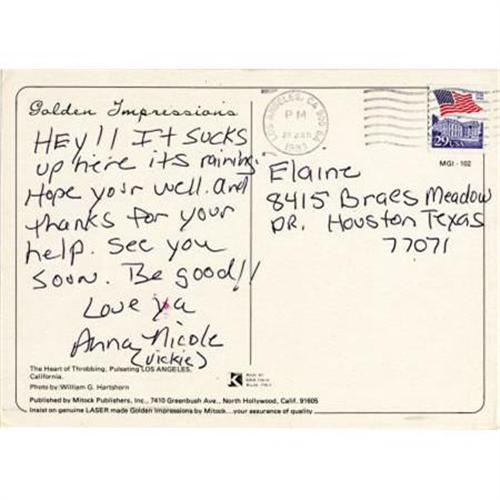 Golden Impressions
HEY!! It sucks
up here its raining.
Hope your well. and
thanks for your
help. See you
soon. Be good!!
Love ya
Anna Nicole
(Vickie)
The Heart of Throbbing, Pulsating LOS ANGELES,
California.
Photo by: William G. Hartshorn
Published by Mitock Publishers, Inc., 7410 Greenbush Ave., North Hollywood, Calif. 91605
Insist on genuine LASER made Golden Impressions by Mitock...your assurance of quality
K
LOS ANGELES, CA
PM
1993
29 USA
MGI - 102
Elaine
8415 Braes Meadow
DR. Houston Texas
77071